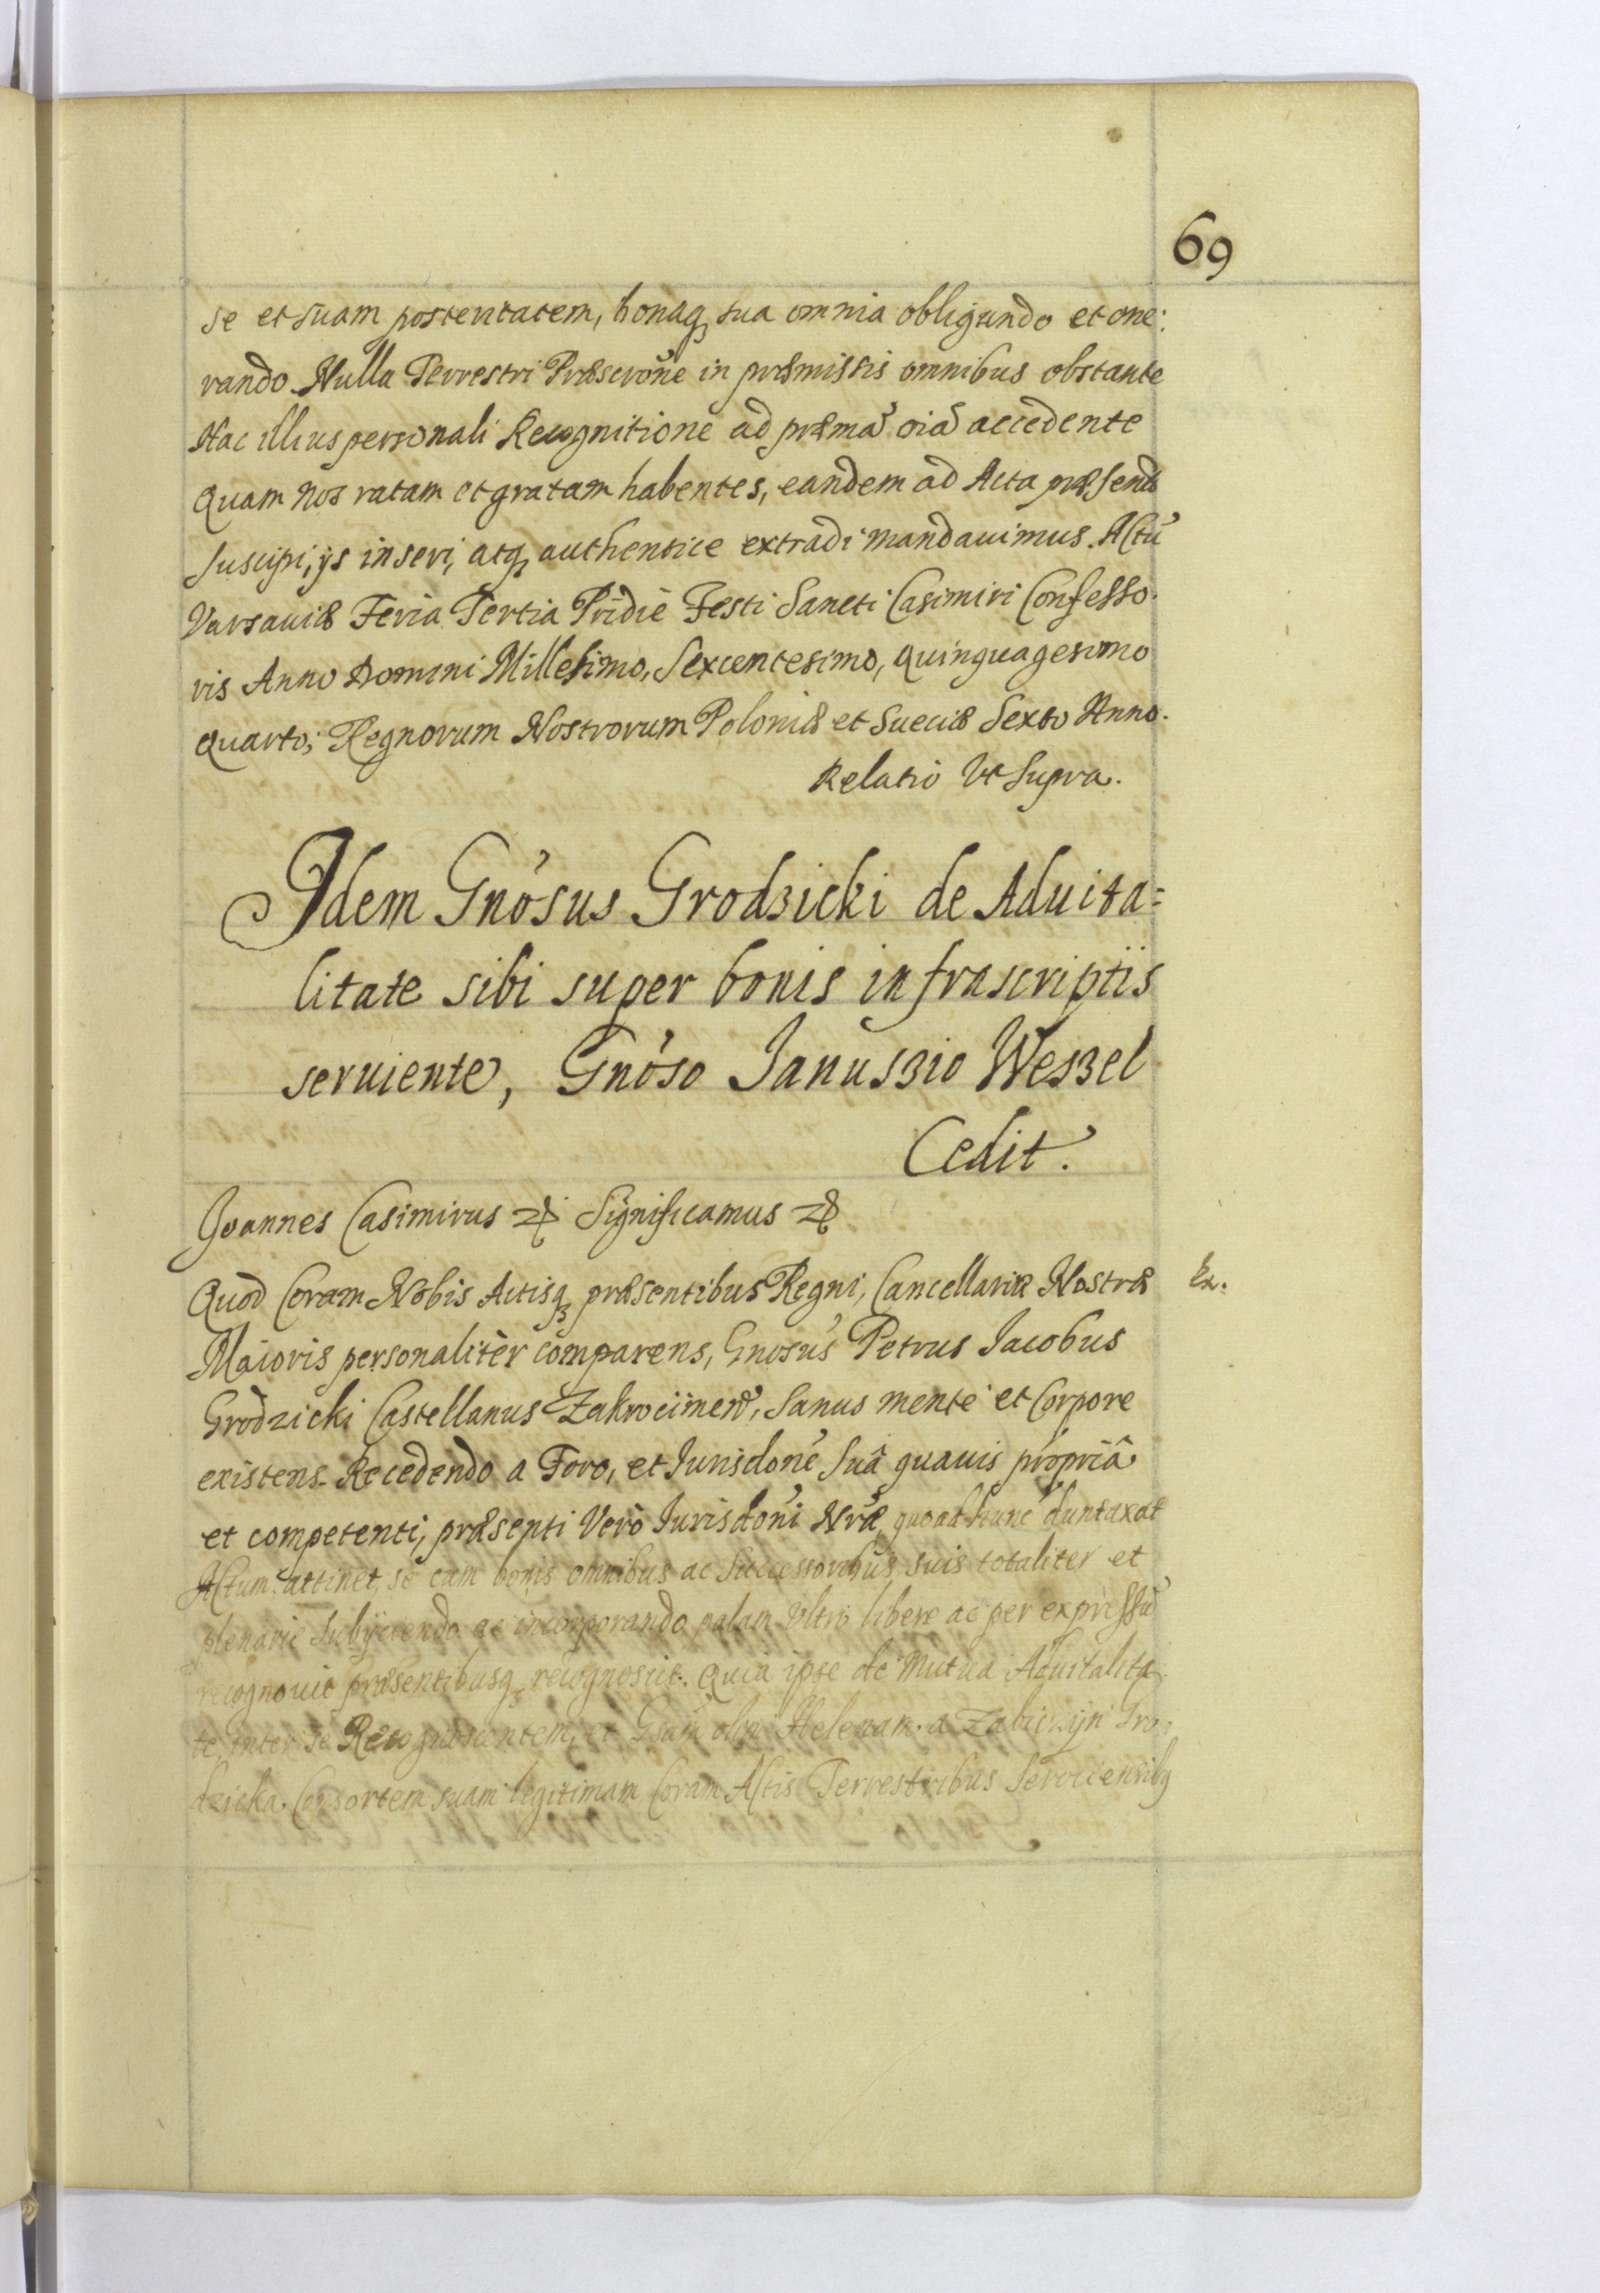 69
se et suam posteritatem, bonaq₃ sua omnia obligando et one:
rando. Nulla Terrestri Præscrōne in præmissis omnibus obstante
Hac illius personali Recognitione ad præmā oiā accedente
Quam nos ratam et gratam habentes, eandem ad Acta præsent
suscipi, ijs inseri, atq₃ authentice extradi mandauimus. Actū
Varsauiæ Feria Tertia Pridiè Festi Sancti Casimiri Confesso-
ris Anno Domini Millesimo, Sexcentesimo, Quinquagesimo
Quarto; Regnorum Nostrorum Poloniæ et Sueciæ Sexto Anno.
Relatio Vt Supra.
Idem Gnosus Grodzicki de Aduita=
litate sibi super bonis infrascriptis
seruiente, Gnoso Januszio Weszel
Cedit.
Joannes Casimirus &c Significamus &c
Quod Coram Nobis Actisq₃ præsentibus Regni, Cancellariæ Nostræ
Ex.
Maioris personalitèr comparens, Gnosus Petrus Jacobus
Grodzicki Castellanus Zakrocimen, Sanus mente et Corpore
existens. Recedendo a Foro, et Jurisdone Suâ quauis propriâ
et competenti, præsenti Verò Jurisdoni Nræ, quoad hunc duntaxat
Actum attinet, se cum bonis omnibus ac Successoribus suis totaliter et
plenarie Subijciendo ac incorporando palam Vltro libere ac per expressū
recognouit præsentibusq₃ recognoscit. Quia ipse de Mutua Aduitalita-
te, inter se Recognoscentem, et Gsam olim Helenam a Zaliczyn Gro=
dzicka Consortem suam legitimam Coram Actis Terrestribus Serocensibq